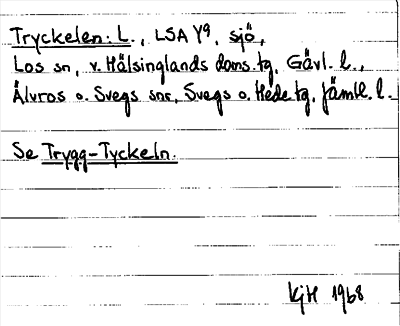 Tryckelen: L., LSA Y9, sjö,
Los sn, v. Hälsinglands doms. tg, Gävl. l.,
Älvros o. Svegs snr, Svegs o. Hede tg, Jämtl. l.
Se Trygg-Tyckeln.
KjH 1968